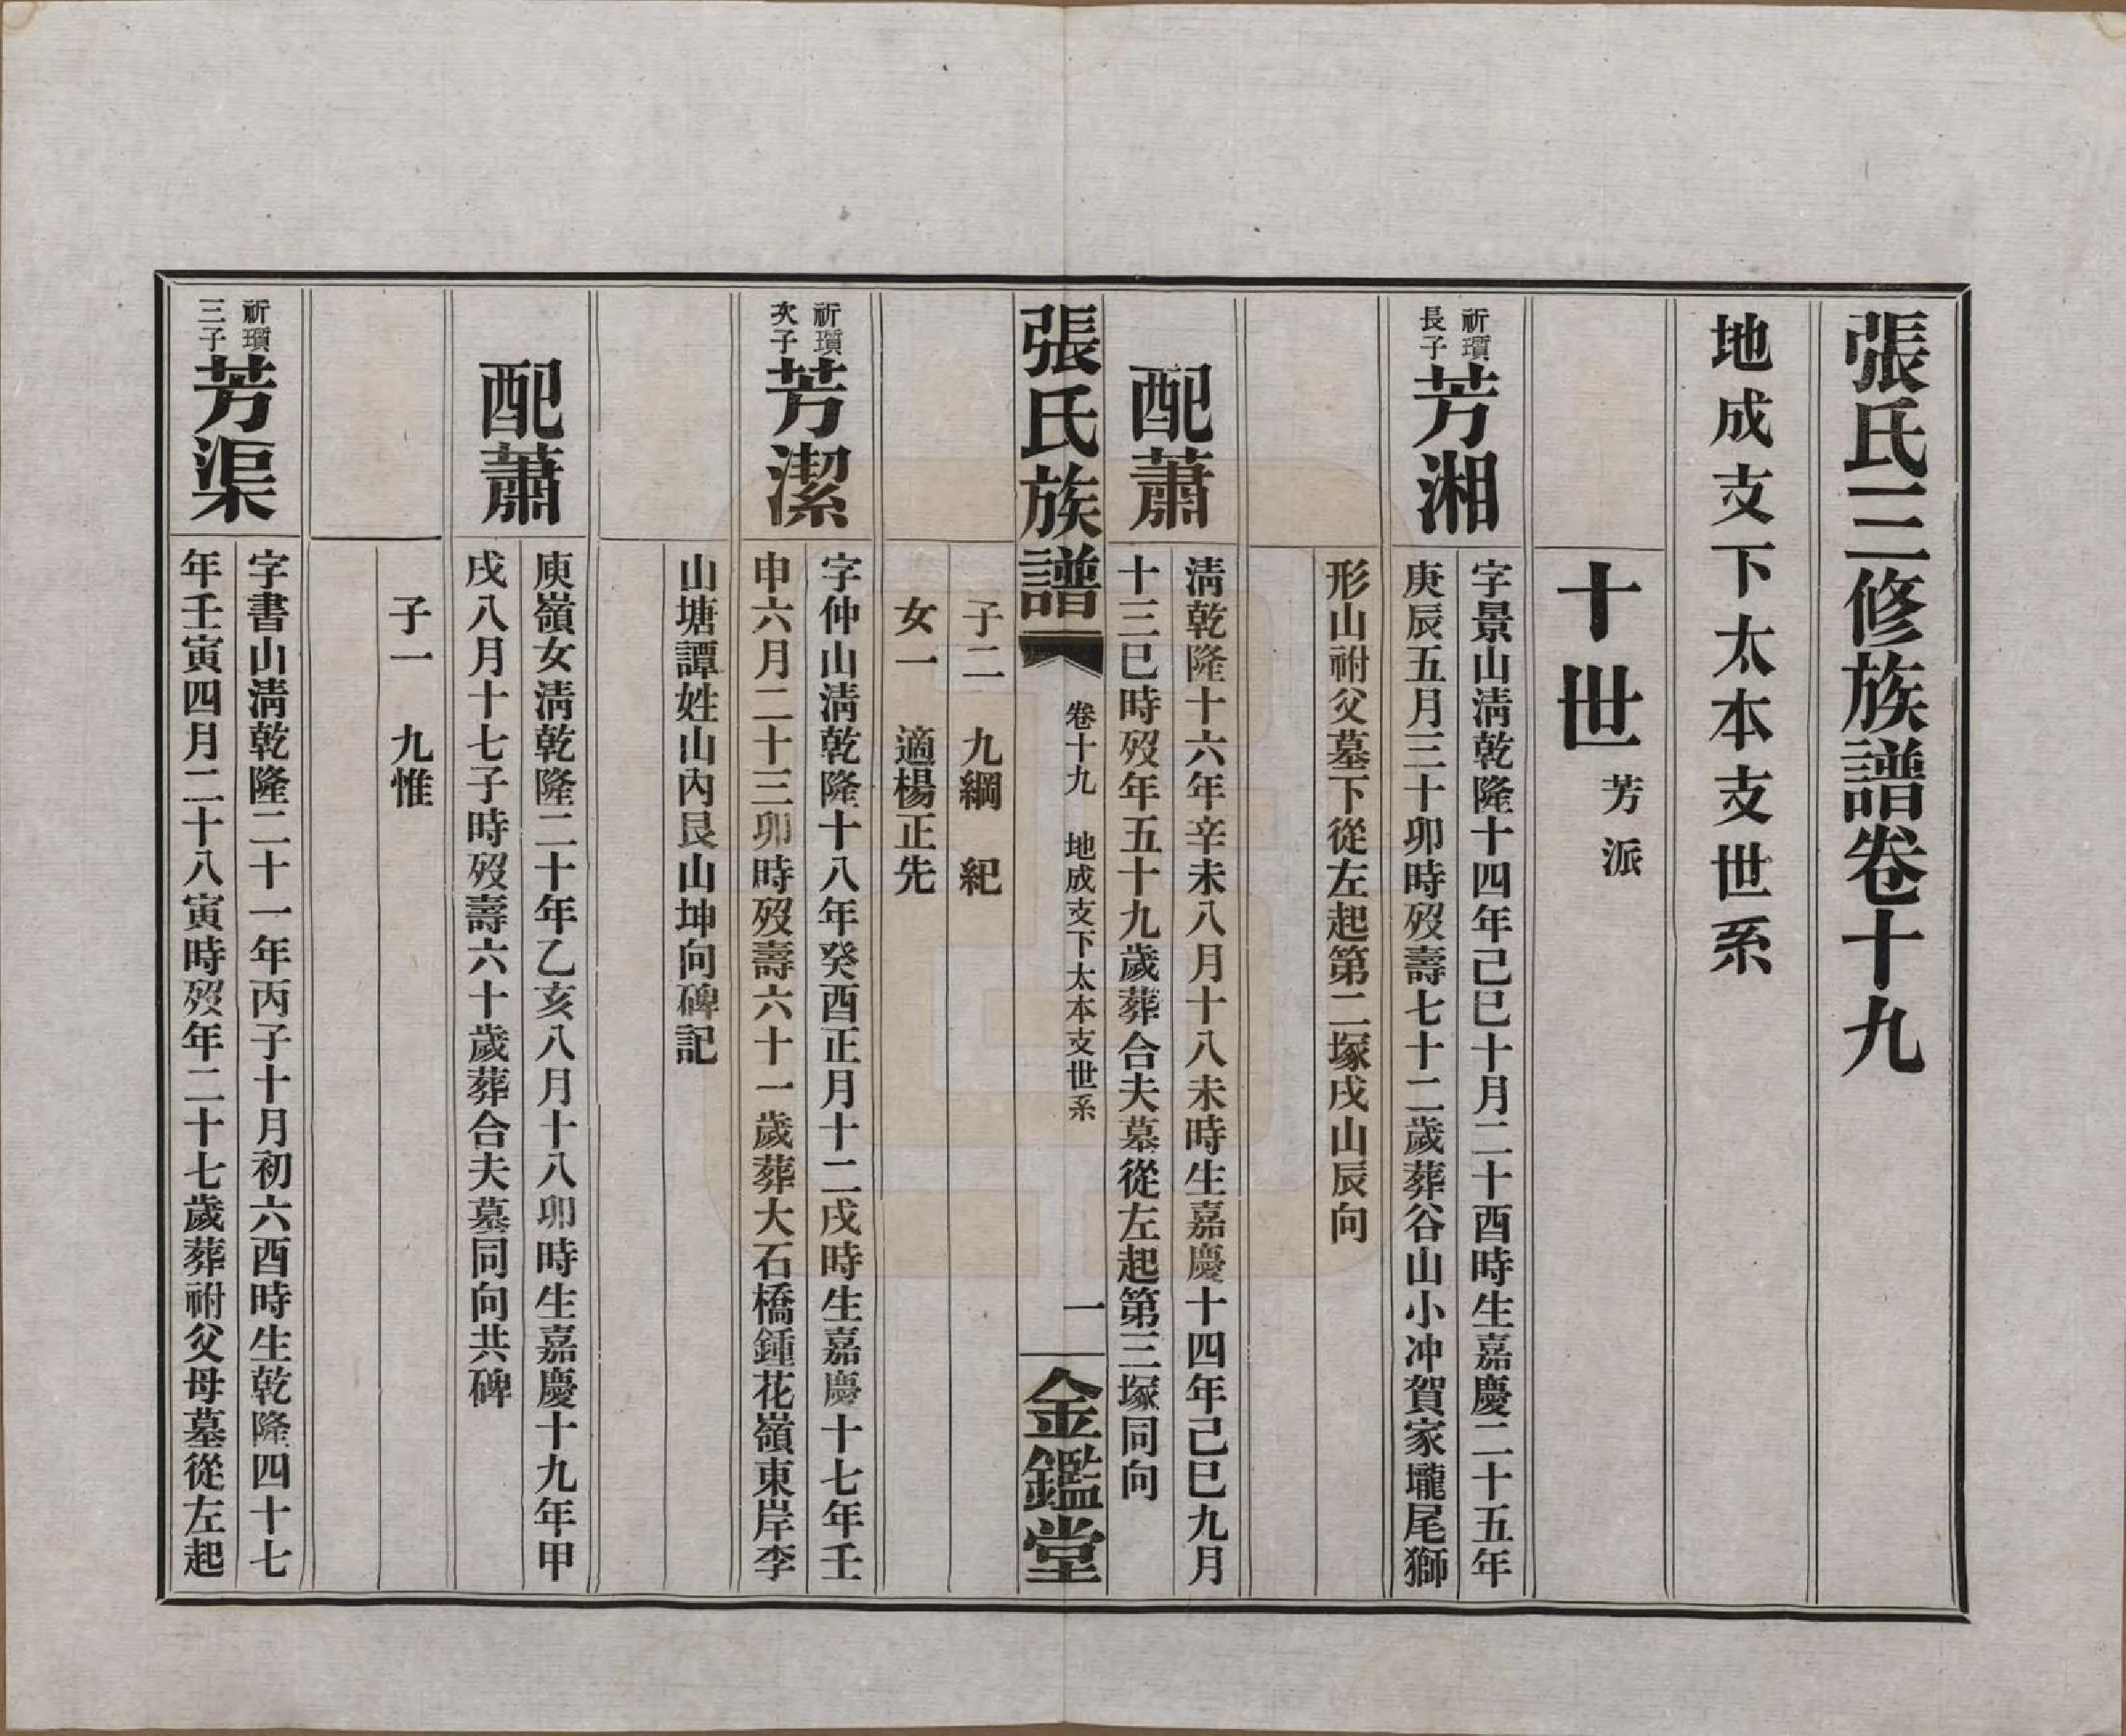 張氏三修族譜卷十九
地成支下太本支世系
十世 芳派
祈瓆
長子
芳湘
字景山淸乾隆十四年己巳十月二十酉時生嘉慶二十五年
庚辰五月三十卯時歿壽七十二歲葬谷山小冲賀家壠尾獅
形山祔父墓下從左起第二塚戌山辰向
配蕭
淸乾隆十六年辛未八月十八未時生嘉慶十四年己巳九月
十三巳時歿年五十九歲葬合夫墓從左起第三塚同向
張氏族譜
卷十九 地成支下太本支世系
一
金鑑堂
子二 九綱 紀
女一 適楊正先
祈瓆
次子
芳潔
字仲山淸乾隆十八年癸酉正月十二戌時生嘉慶十七年壬
申六月二十三卯時歿壽六十一歲葬大石橋鍾花嶺東岸李
山塘譚姓山內艮山坤向碑記
配蕭
庾嶺女淸乾隆二十年乙亥八月十八卯時生嘉慶十九年甲
戌八月十七子時歿壽六十歲葬合夫墓同向共碑
子一 九惟
祈瓆
三子
芳渠
字書山淸乾隆二十一年丙子十月初六酉時生乾隆四十七
年壬寅四月二十八寅時歿年二十七歲葬祔父母墓從左起